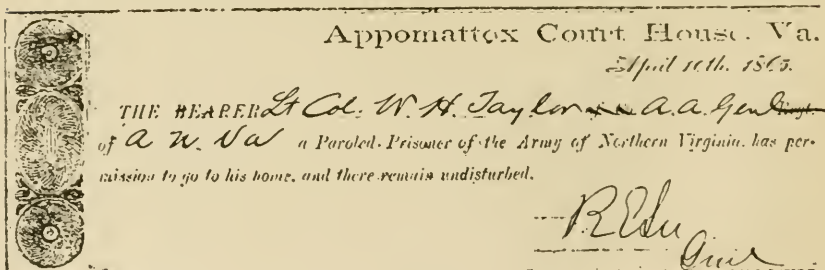 Appomattox Court House, Va.
April 10th, 1865.
THE BEARER Lt Col. W. H. Taylor A. A. Genl
of A. N. Va a Paroled Prisoner of the Army of Northern Virginia, has per-
mission to go to his home, and there remain undisturbed.
R E Lee
Genl